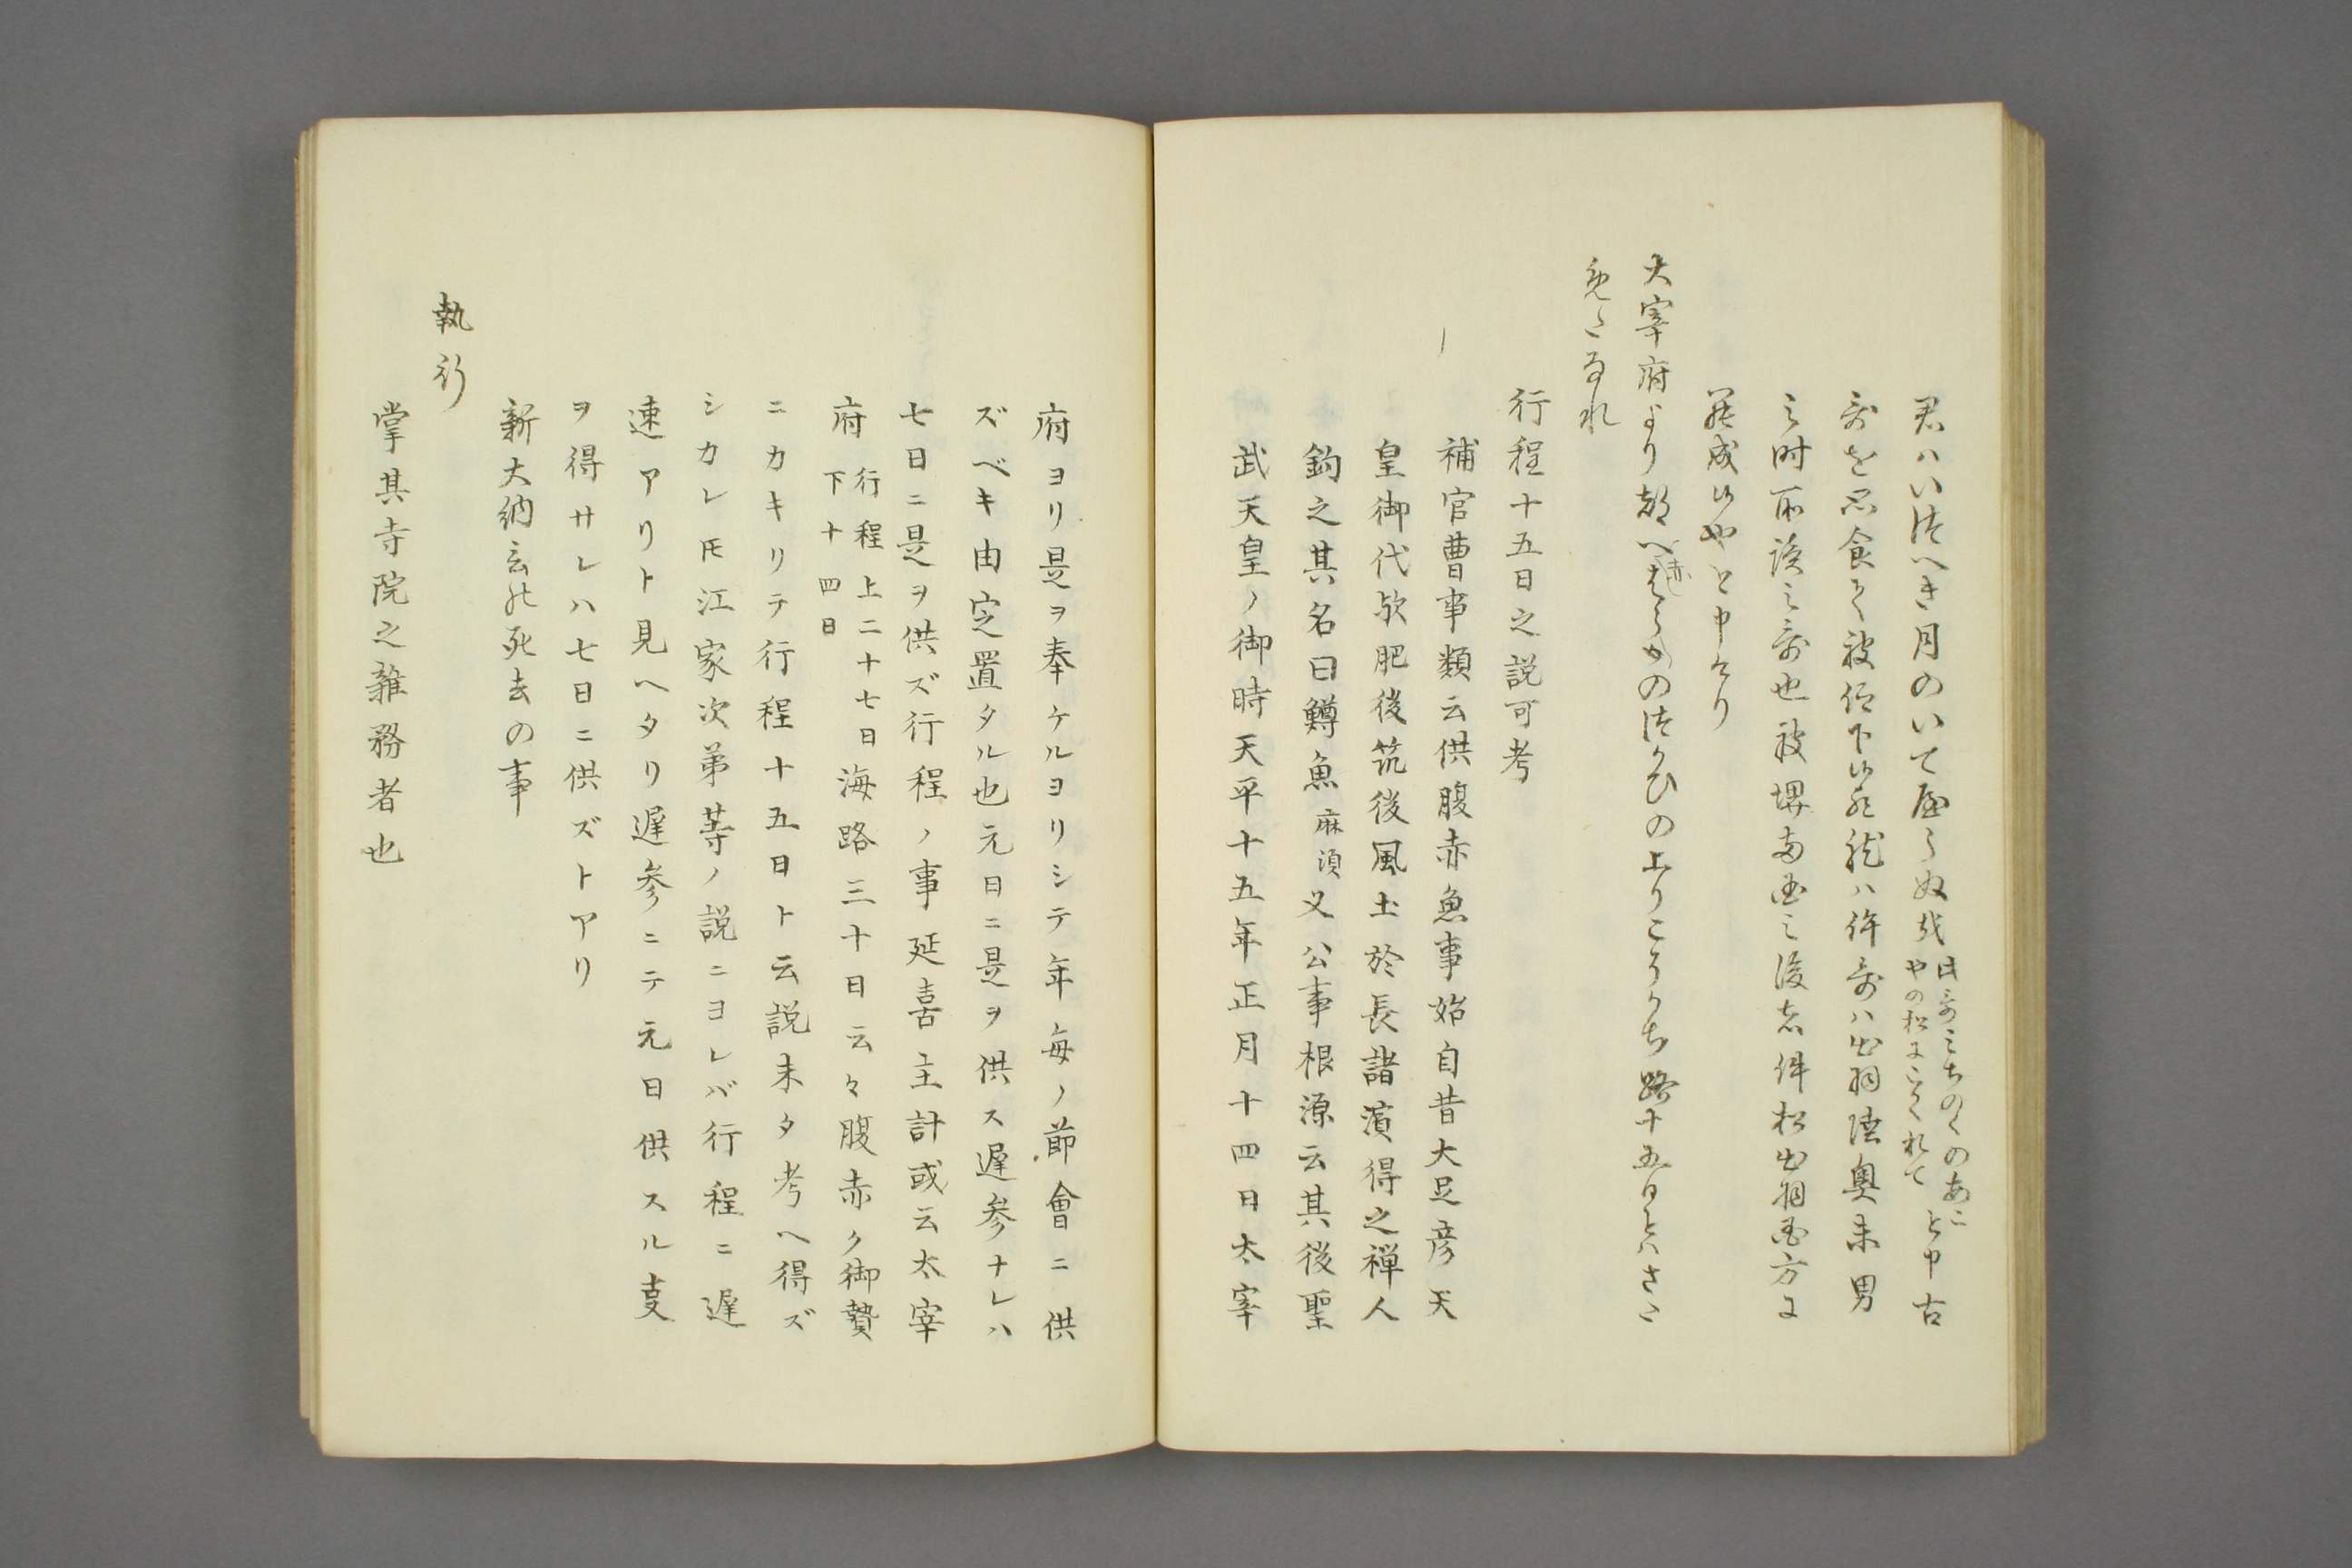 君ハいにへき月のいてやらぬ哉 此哥みちのくのあこやの松にこかくれて と申古
哥を思食て被仰下候然ハ件哥ハ出羽陸奥未男
之時所詠之哥也被堺両国之後者件松出羽国方に
罷成候也と申けり
大宰府より都へはらかの使の上りこそかち路十五日とハさた
めたるれ
行程十五日之説可考
補官曹事類云供腹赤魚事始自昔大足彦天
皇御代欤肥後筑後風土於長諸濱得之禅人
釣之其名曰鱒魚 麻須 又公事根源云其後聖
武天皇ノ御時天平十五年正月十四日太宰
府ヨリ是ヲ奉ケルヨリシテ年毎ノ節會ニ供
ズベキ由定置タル也元日ニ是ヲ供ス遅参ナレハ
七日ニ是ヲ供ズ行程ノ事延喜主計或云太宰
府 行程上二十七日下十四日 海路三十日云々腹赤ク御贄
ニカキリテ行程十五日ト云説未タ考ヘ得ズ
シカレ𪜈江家次第等ノ説ニヨレバ行程ニ遅
速アリト見ヘタリ遅参ニテ元日供スル事
ヲ得サレハ七日ニ供ズトアリ
新大納言死去の事
執行
掌其寺院之雑務者也